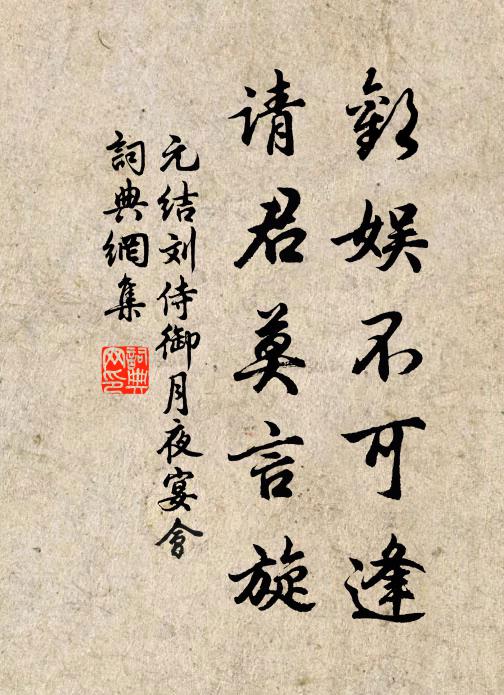 歡娱不可逢
请君莫言旋
元结刘侍御月夜宴會
詞典網集
詞典网印